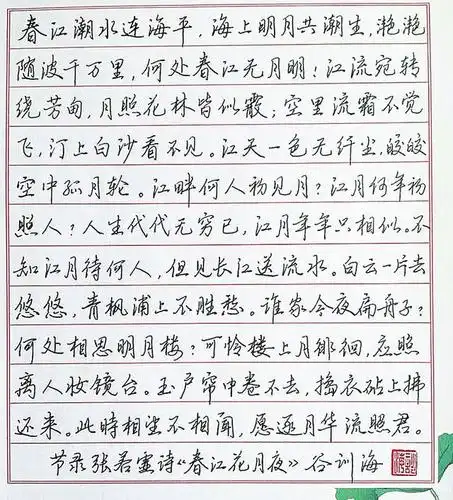 春江潮水连海平，海上明月共潮生，滟滟
随波千万里，何处春江无月明！江流宛转
绕芳甸，月照花林皆似霰；空里流霜不觉
飞，汀上白沙看不见。江天一色无纤尘，皎皎
空中孤月轮。江畔何人初见月？江月何年初
照人？人生代代无穷已，江月年年只相似。不
知江月待何人，但见长江送流水。白云一片去
悠悠，青枫浦上不胜愁。谁家今夜扁舟子？
何处相思明月楼？可怜楼上月徘徊，应照
离人妆镜台。玉户帘中卷不去，捣衣砧上拂
还来。此時相望不相闻，愿逐月华流照君。
节录张若虚诗《春江花月夜》谷训海